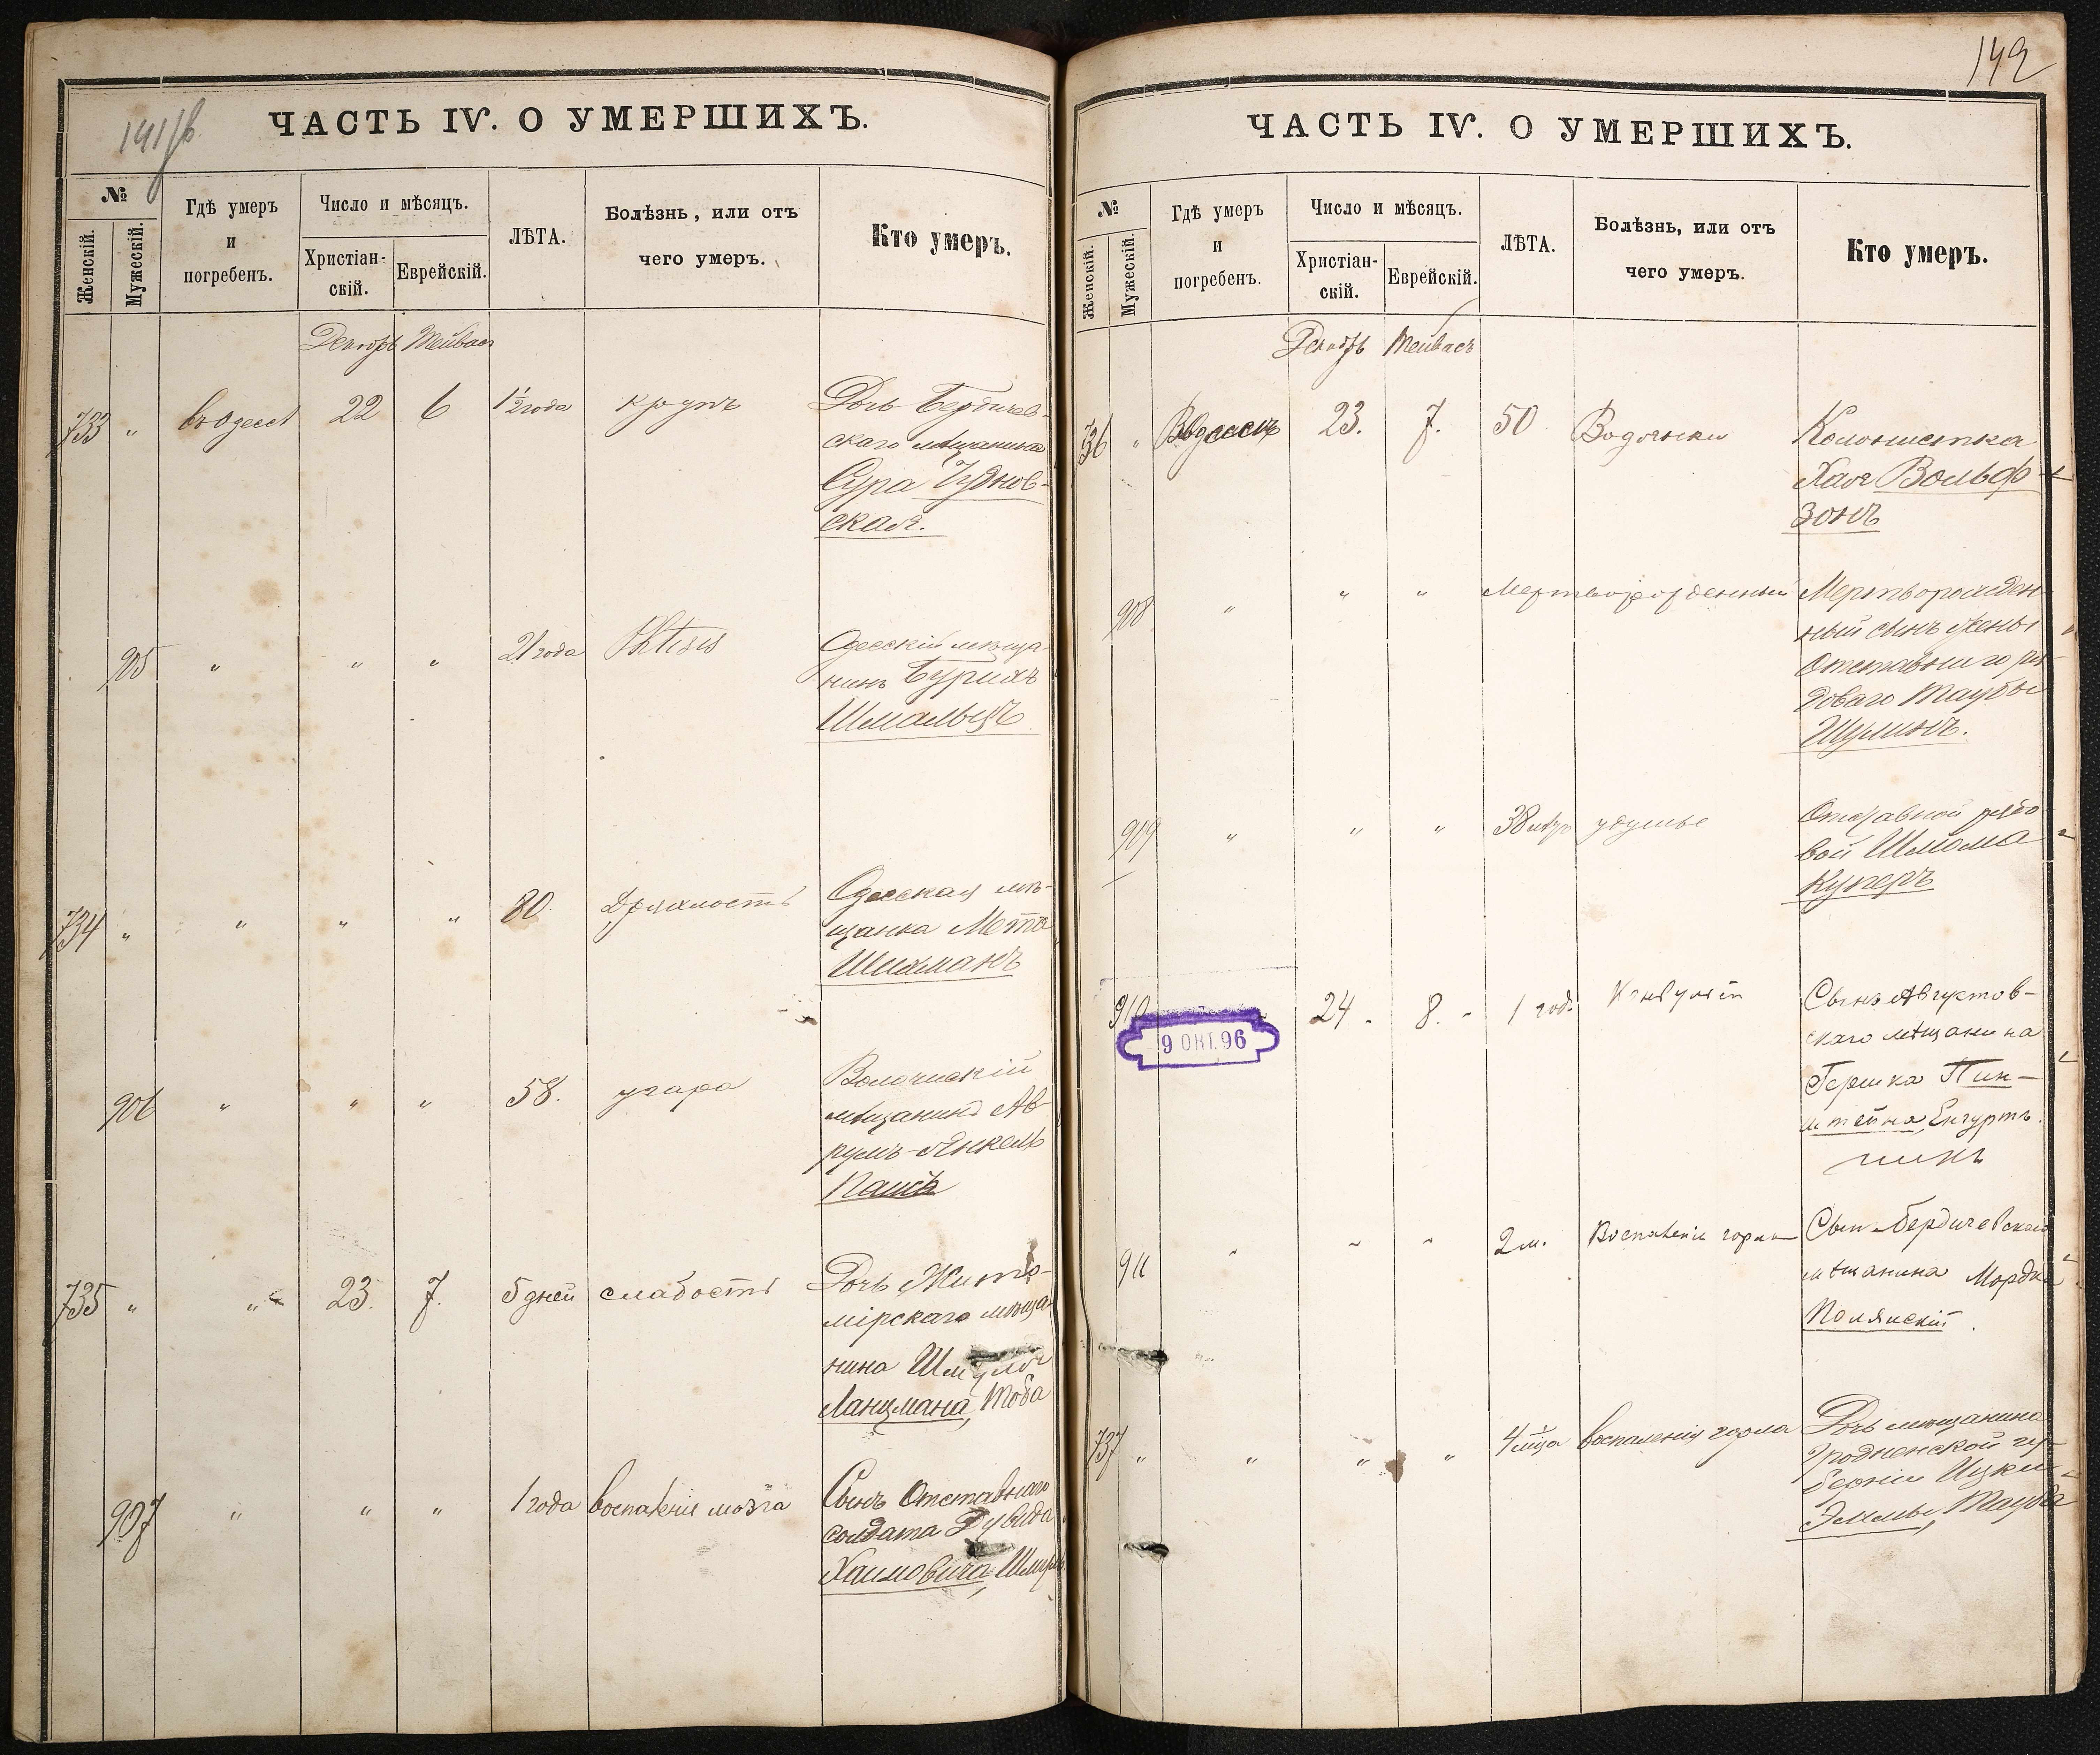 ЧАСТЬ IV. О УМЕРШИХЪ.
№
Женскій.
Мужескій.
Гдѣ умеръ
и
погребенъ.
Число и мѣсяцъ.
Христіан-
скій.
Еврейскій.
ЛѢТА.
Болѣзнь, или отъ
чего умеръ.
Кто умеръ.
733 " 22 6 1½ года крупъ Дочь Бердичев-
скаго мѣщанина
Сура Чуднов-
ская.
905 " " " 21 года Phtisis Одесскій мѣща-
нинъ Бурихъ
Шмальцъ
734 " " " " 80. Дряхлость Одесская мѣ-
щанка Мота
Шихманъ
906 " " " 58. угара
мѣщанинъ Ав-
румъ-Янкель
735 " " 23. 7. 5 дней слабость Дочь Жито-
мірскаго мѣща-
нина Шмуля
Ланцмана, Тоба
907 " " " 1 года воспаленія мозга Сынъ Отставнаго
солдата Дувида
Хаимовича,
142
ЧАСТЬ IV. О УМЕРШИХЪ.
№
Женскій.
Мужескій.
Гдѣ умеръ
и
погребенъ.
Число и мѣсяцъ.
Христіан-
скій.
Еврейскій.
ЛѢТА.
Болѣзнь, или отъ
чего умеръ.
Кто умеръ.
736 " 23. 7. 50 Водянки Колонистка
Хая Вольф-
зонъ
908 " " " Мертворожденный Мертворожден-
ный сынъ жены
Отставнаго ря-
доваго Таубы
Шулимъ.
909 " " " 38 удушье Отставной рядо-
вой Шлома
Куперъ
910 24. 8. 1 год. Сынъ Августов-
скаго мѣщанина
Гершка Пин-
штейна,
9 ОКТ.96
911 " " " 2 м. Воспаленіе горла Сынъ Бердичевскаго
мѣщанина Мордка
Полянскій.
737 " " " " воспаленія горла Дочь мѣщанина
Гродненской гу-
берніи Ицки
Тауба